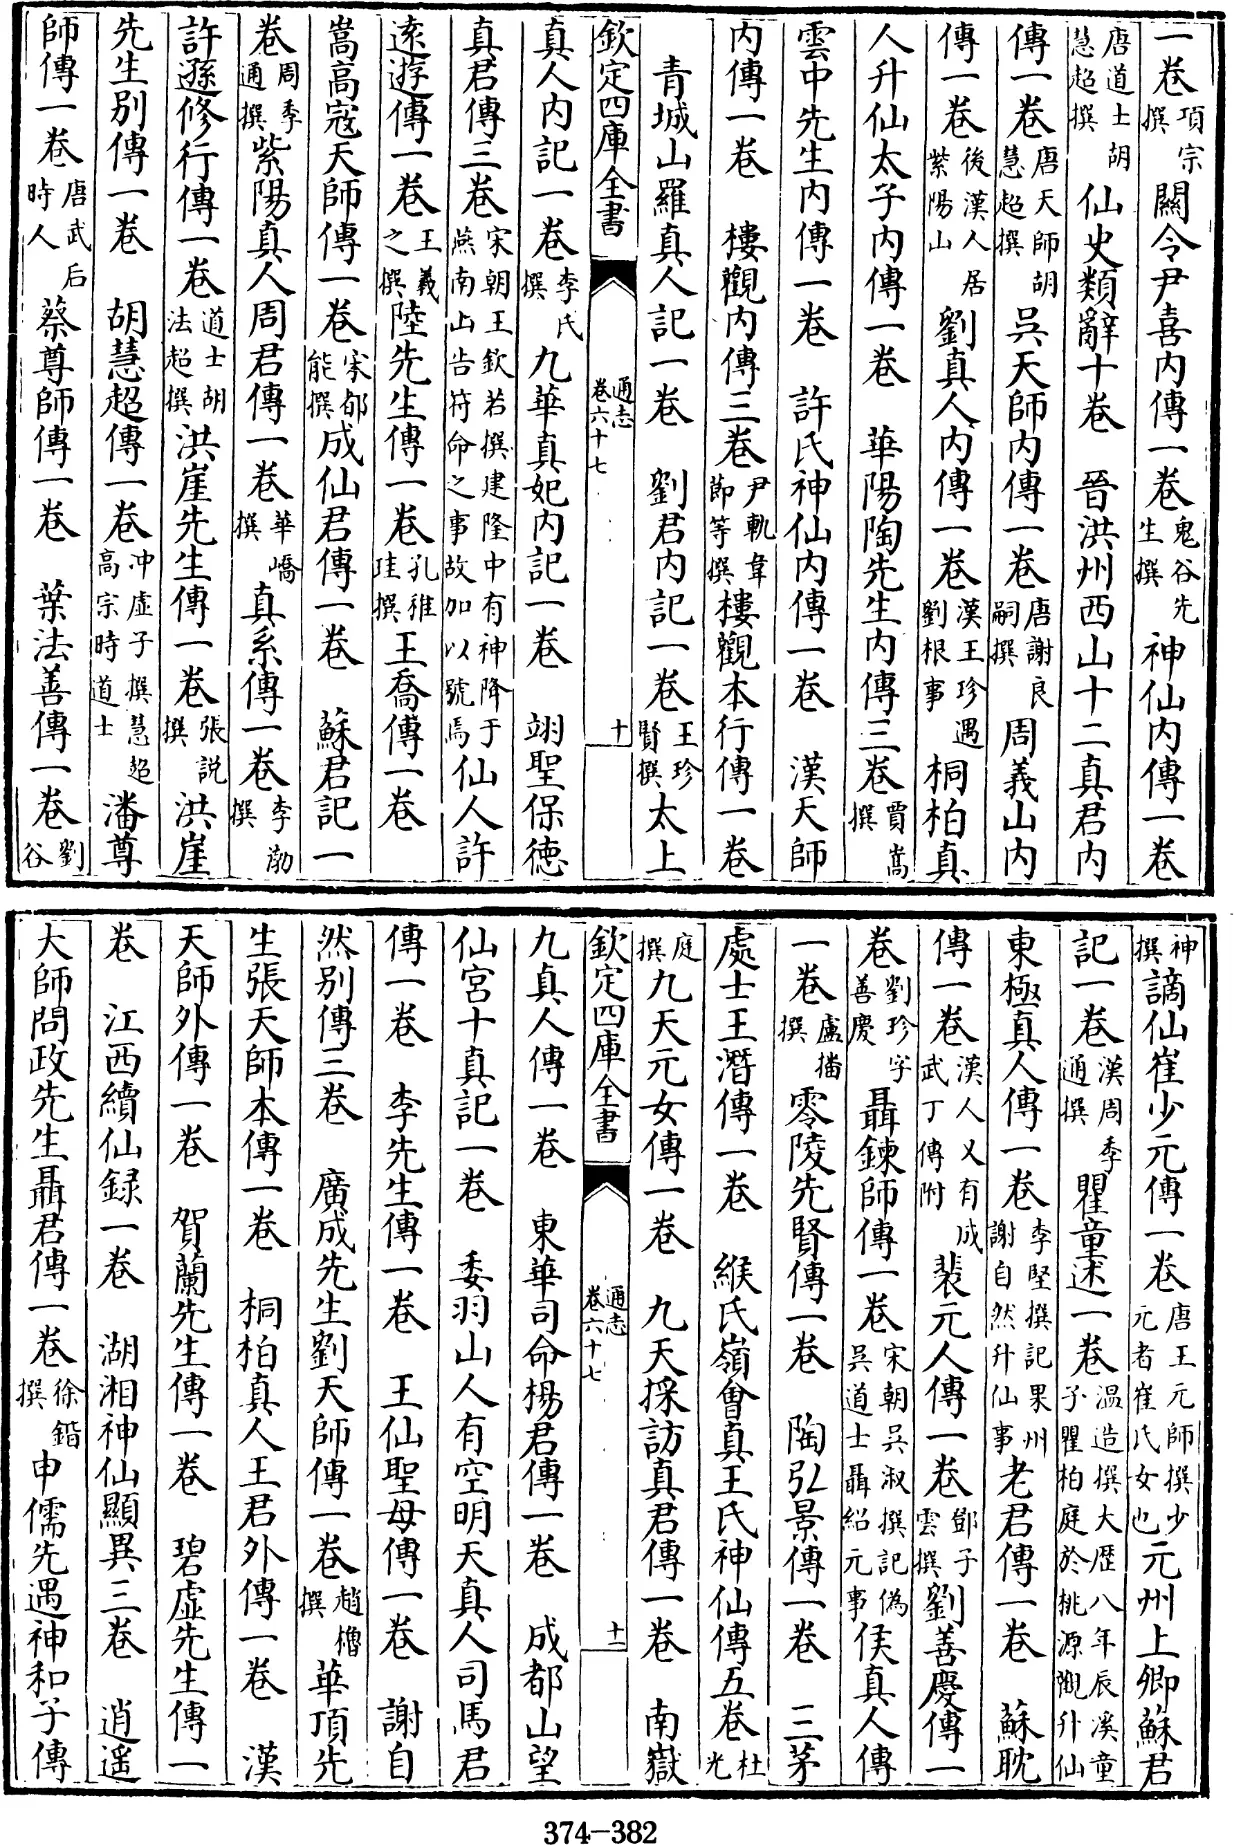 一卷項宗撰關令尹喜內傳一卷鬼谷先生撰神仙內傳一卷
唐道士胡慧超撰仙史類辭十卷　晉洪州西山十二真君內
傳一卷唐天師胡慧超撰吳天師內傳一卷唐謝良嗣撰周義山內
傳一卷後漢人居紫陽山劉真人內傳一卷漢王珍遇劉根事桐柏真
人升仙太子內傳一卷　華陽陶先生內傳三卷賈嵩撰
雲中先生內傳一卷　許氏神仙內傳一卷　漢天師
內傳一卷　樓觀內傳三卷尹軌韋節等撰樓觀本行傳一卷
青城山羅真人記一卷　劉君內記一卷王珍賢撰太上
欽定四庫全書　通志卷六十七　十
真人內記一卷李氏撰九華真妃內記一卷　翊聖保德
真君傳三卷宋朝王欽若撰建隆中有神降于燕南山告符命之事故加以號焉仙人許
遠遊傳一卷王羲之撰陸先生傳一卷孔稚珪撰王喬傳一卷
嵩高寇天師傳一卷宋郁能撰成仙君傳一卷　蘇君記一
卷周季通撰紫陽真人周君傳一卷華嶠撰真系傳一卷李渤撰
許遜修行傳一卷道士胡法超撰洪崖先生傳一卷張說撰洪崖
先生別傳一卷　胡慧超傳一卷冲虛子撰慧超高宗時道士潘尊
師傳一卷唐武后時人蔡尊師傳一卷　葉法善傳一卷劉谷
神撰謫仙崔少元傳一卷唐王元師撰少元者崔氏女也元州上卿蘇君
記一卷漢周季通撰瞿童述一卷温造撰大歷八年辰溪童子瞿柏庭於桃源觀升仙
東極真人傳一卷李堅撰記果州謝自然升仙事老君傳一卷　蘇耽
傳一卷漢人又有成武丁傳附裴元人傳一卷鄧子雲撰劉善慶傳一
卷劉珍字善慶聶鍊師傳一卷宋朝吳淑撰記偽吳道士聶紹元事侯真人傳
一卷盧播撰零陵先賢傳一卷　陶弘景傳一卷　三茅
處士王潛傳一卷　緱氏嶺會真王氏神仙傳五卷杜光
庭撰九天元女傳一卷　九天採訪真君傳一卷　南嶽
欽定四庫全書　通志卷六十七　十一
九真人傳一卷　東華司命楊君傳一卷　成都山望
仙宮十真記一卷　委羽山人有空明天真人司馬君
傳一卷　李先生傳一卷　王仙聖母傳一卷　謝自
然別傳三卷　廣成先生劉天師傳一卷趙櫓撰華頂先
生張天師本傳一卷　桐柏真人王君外傳一卷　漢
天師外傳一卷　賀蘭先生傳一卷　碧虛先生傳一
卷　江西續仙録一卷　湖湘神仙顯異三卷　逍遥
大師問政先生聶君傳一卷徐鍇撰申儒先遇神和子傳
374-382